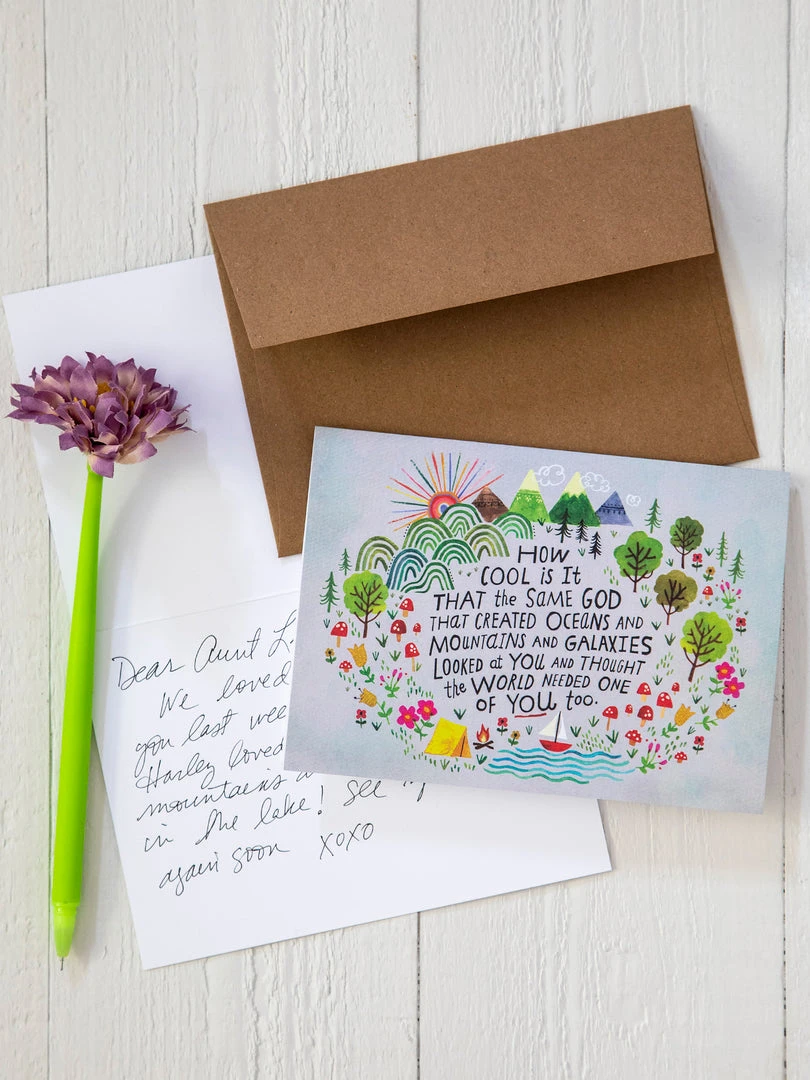 HOW
COOL is It
THAT the SAME GOD
THAT CREATED OCEANS AND
MOUNTAINS AND GALAXIES
LOOKED at YOU AND THOUGHT
the WORLD NEEDED ONE
OF YOU too.
Dear Aunt L.
We loved
you last wee
Harley loved
mountains a
in the lake! See y
again soon XOXO